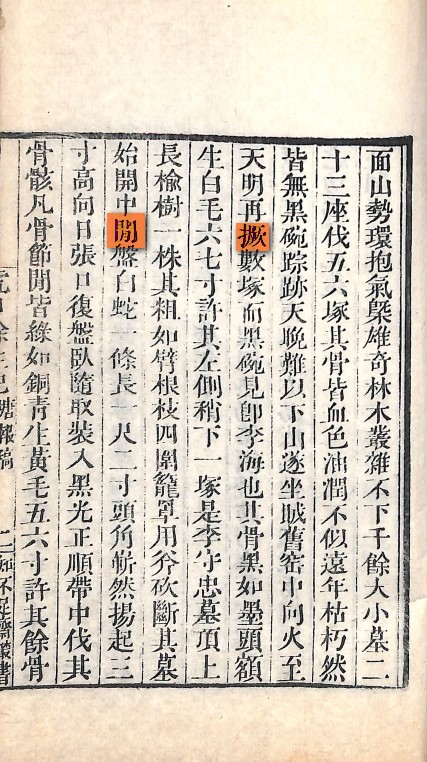 面山勢環抱氣槩雄奇林木叢雜不下千餘大小墓二
十三座伐五六塚其骨皆血色油潤不似遠年枯朽然
皆無黑碗踪跡天晚難以下山遂坐賊舊窑中向火至
天明再撅數塚而黑碗見卽李海也其骨黑如墨頭額
生白毛六七寸許其左側稍下一塚是李守忠墓頂上
長榆樹一株其粗如臂根枝四圍籠罩用斧砍斷其墓
始開中閒盤白蛇一條長一尺二寸頭角嶄然揚起三
寸高向日張口復盤臥隨取裝入黑光正順帶中伐其
骨骸凡骨節閒皆綠如銅青生黃毛五六寸許其餘骨
虎口餘生記 塘報稿 二 知不足齋叢書